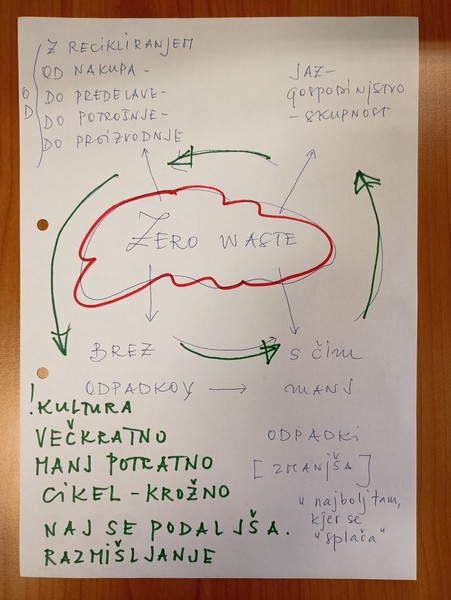 Z RECIKLIRANJEM
OD NAKUPA -
DO PREDELAVE -
DO POTROŠNJE -
DO PROIZVODNJE
OD
JAZ -
GOSPODINJSTVO
- SKUPNOST
ZERO WASTE
BREZ
ODPADKOV →
S ČIM
MANJ
ODPADKI
[ZMANJŠA]
"najbolj tam,
kjer se
"splača"
! KULTURA
VEČKRATNO
MANJ POTRATNO
CIKEL - KROŽNO
NAJ SE PODALJŠA.
RAZMIŠLJANJE